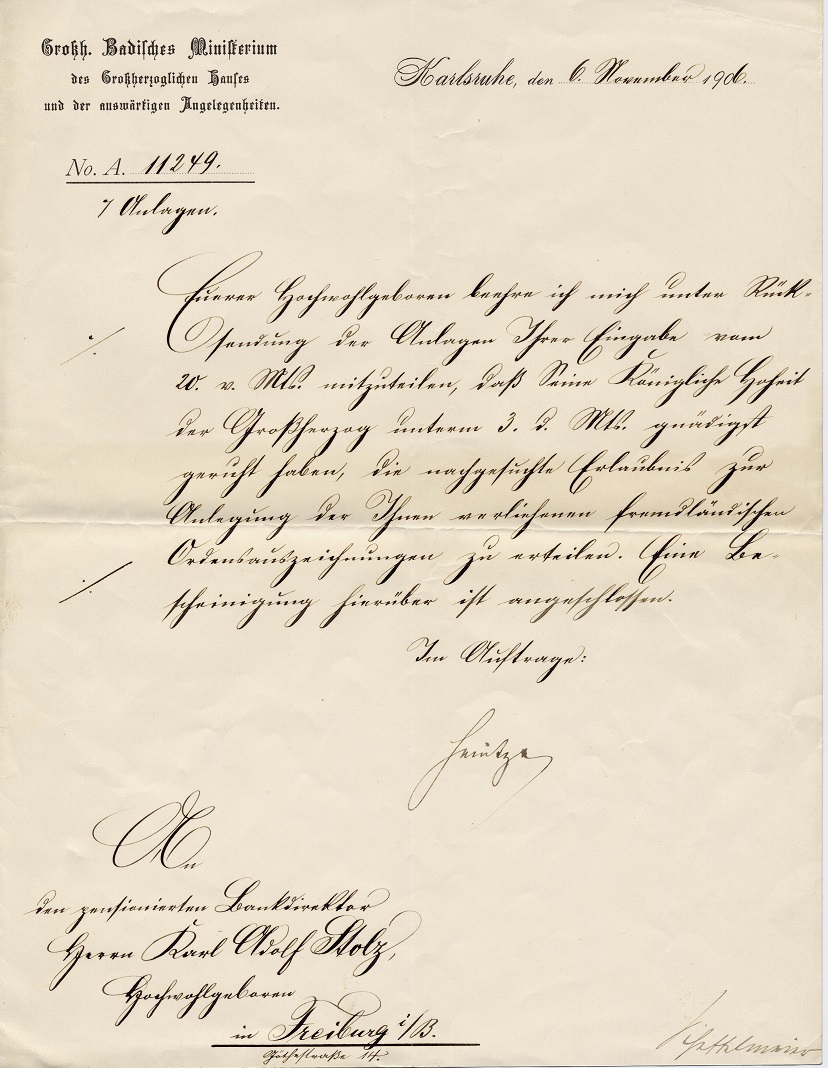 Großh. Badisches Ministerium
des Großherzoglichen Hauses
und der auswärtigen Angelegenheiten.
Karlsruhe, den 6. November 1906.
No. A. 11249.
7 Anlagen.
Euerer Hochwohlgeboren beehre ich mich unter Rück-
sendung der Anlagen Ihrer Eingabe vom
20. v. Mts. mitzuteilen, daß Seine Königliche Hoheit
der Großherzog unterm 3. d. Mts. gnädigst
geruht haben, die nachgesuchte Erlaubnis zur
Anlegung der Ihnen verliehenen fremdländischen
Ordensauszeichnungen zu erteilen. Eine Be-
scheinigung hierüber ist angeschlossen.
Im Auftrage:
Heintze
An
den pensionierten Bankdirektor
Herrn Karl Adolf Stolz,
Hochwohlgeboren
in Freiburg i/B.
Göthestraße 14.